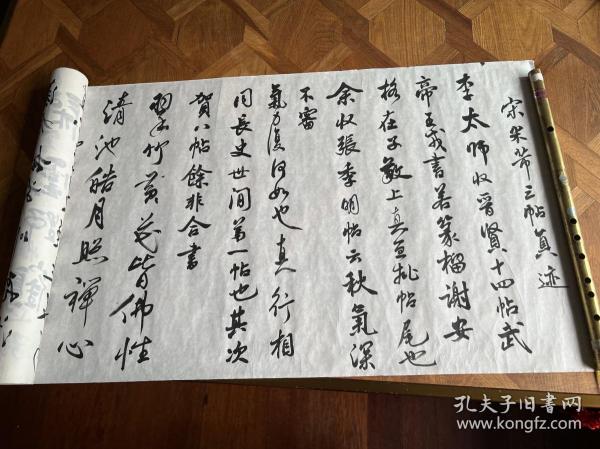 宋米芾三帖真迹
李太師收晉賢十四帖武
帝王戎書若篆籀謝安
格在子敬上真宜批帖尾也
余收張季明帖云秋氣深
不審
氣力復何如也真行相
同長史世间第一帖也其次
賀八帖餘非合書
翠竹黄花皆佛性
清池皓月照禪心
孔夫子旧书网
www.kongfz.com